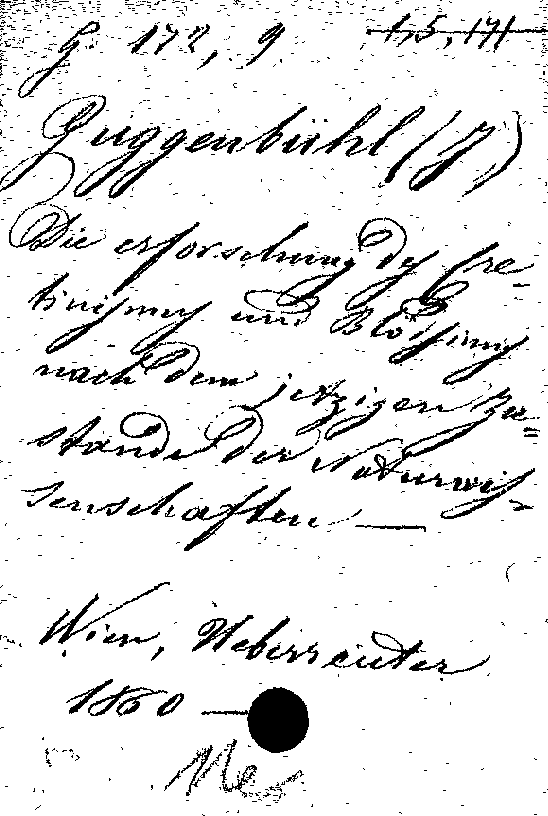 G 172, 9 1,5,171
Guggenbühl (J)
Die erforschung des Cre-
tinismus und Blödsinns
nach dem jetzigen Zu=
stande der Naturwis-
senschaften —
Wien, Ueberreuter
1860 —